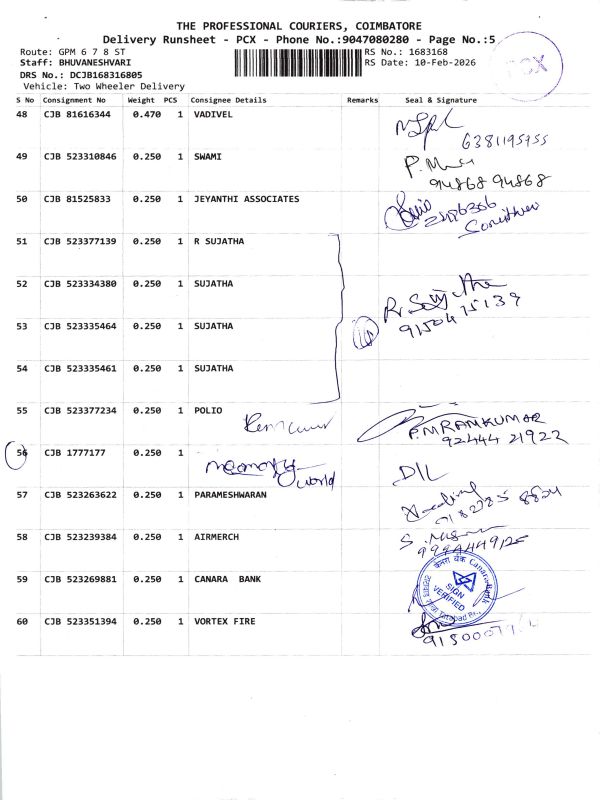 THE PROFESSIONAL COURIERS, COIMBATORE
Delivery Runsheet - PCX - Phone No.:9047080280 - Page No.:5
Route: GPM 6 7 8 ST
RS No.: 1683168
Staff: BHUVANESHVARI
RS Date: 10-Feb-2026
PCX
DRS No.: DCJB168316805
Vehicle: Two Wheeler Delivery
S No Consignment No Weight PCS Consignee Details Remarks Seal & Signature
48 CJB 81616344 0.470 1 VADIVEL
6381195955
49 CJB 523310846 0.250 1 SWAMI
94868 94868
50 CJB 81525833 0.250 1 JEYANTHI ASSOCIATES
51 CJB 523377139 0.250 1 R SUJATHA
52 CJB 523334380 0.250 1 SUJATHA
R Sujatha
53 CJB 523335464 0.250 1 SUJATHA
9150475139
54 CJB 523335461 0.250 1 SUJATHA
55 CJB 523377234 0.250 1 POLIO
P.M RAMKUMAR
92444 21922
56 CJB 1777177 0.250 1
memory world
D/L
57 CJB 523263622 0.250 1 PARAMESHWARAN
58 CJB 523239384 0.250 1 AIRMERCH
59 CJB 523269881 0.250 1 CANARA BANK
केनरा बैंक Canara Bank
SIGN VERIFIED
60 CJB 523351394 0.250 1 VORTEX FIRE